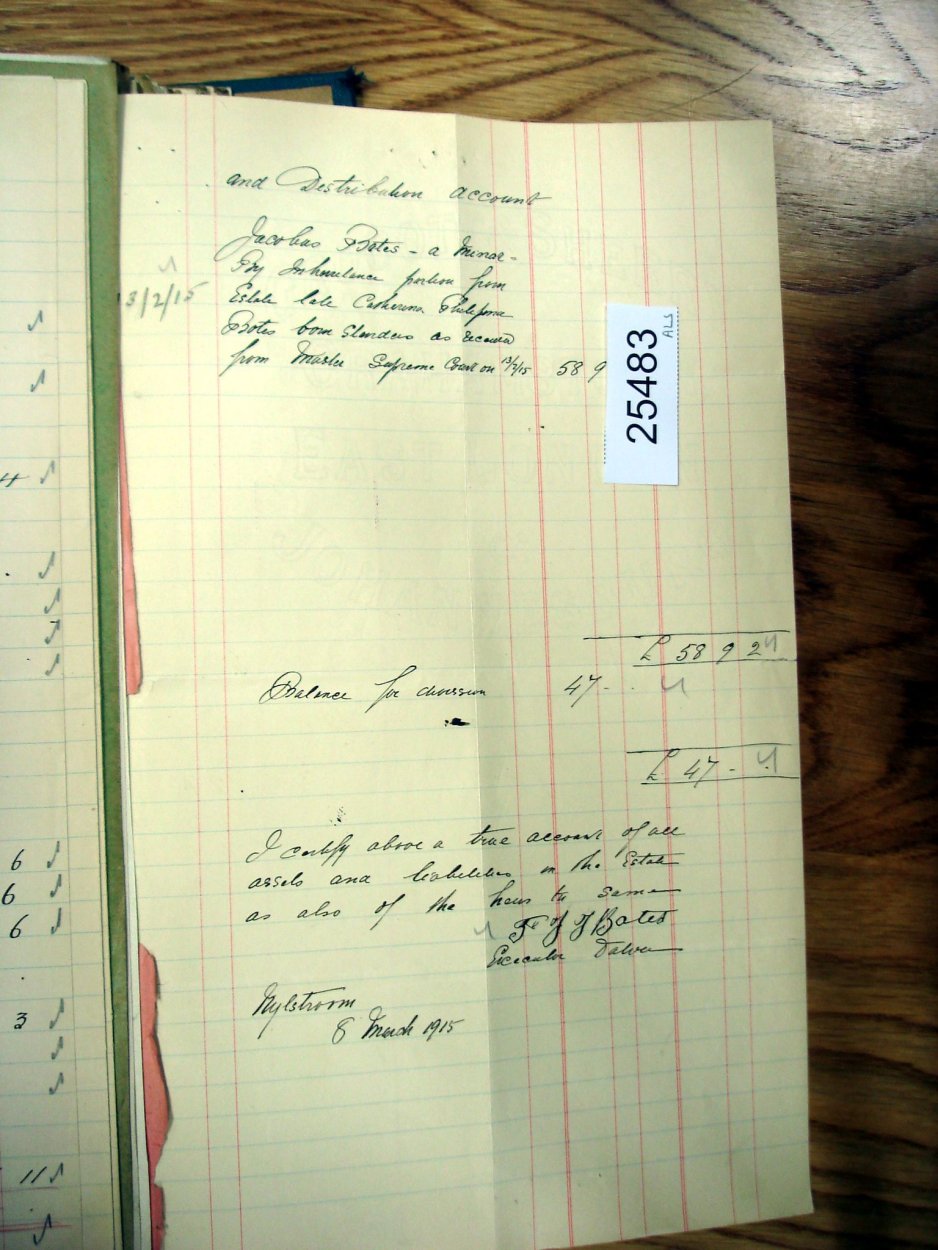 and Distribution account
Jacobus Botes - a Minor -
By Inheritance portion from
13/2/15
Estate late Catherina Philipina
Botes born Slenders as received
from Master Supreme Court on 13/2/15 58 9
25483
ALS
£ 58 9 2
Balance for division 47 - -
£ 47 - -
I certify above a true account of all
assets and liabilities in the Estate
as also of the heirs to same
Botes
Executor Dative
Nylstroom
8 March 1915
4
6
6
6
3
11